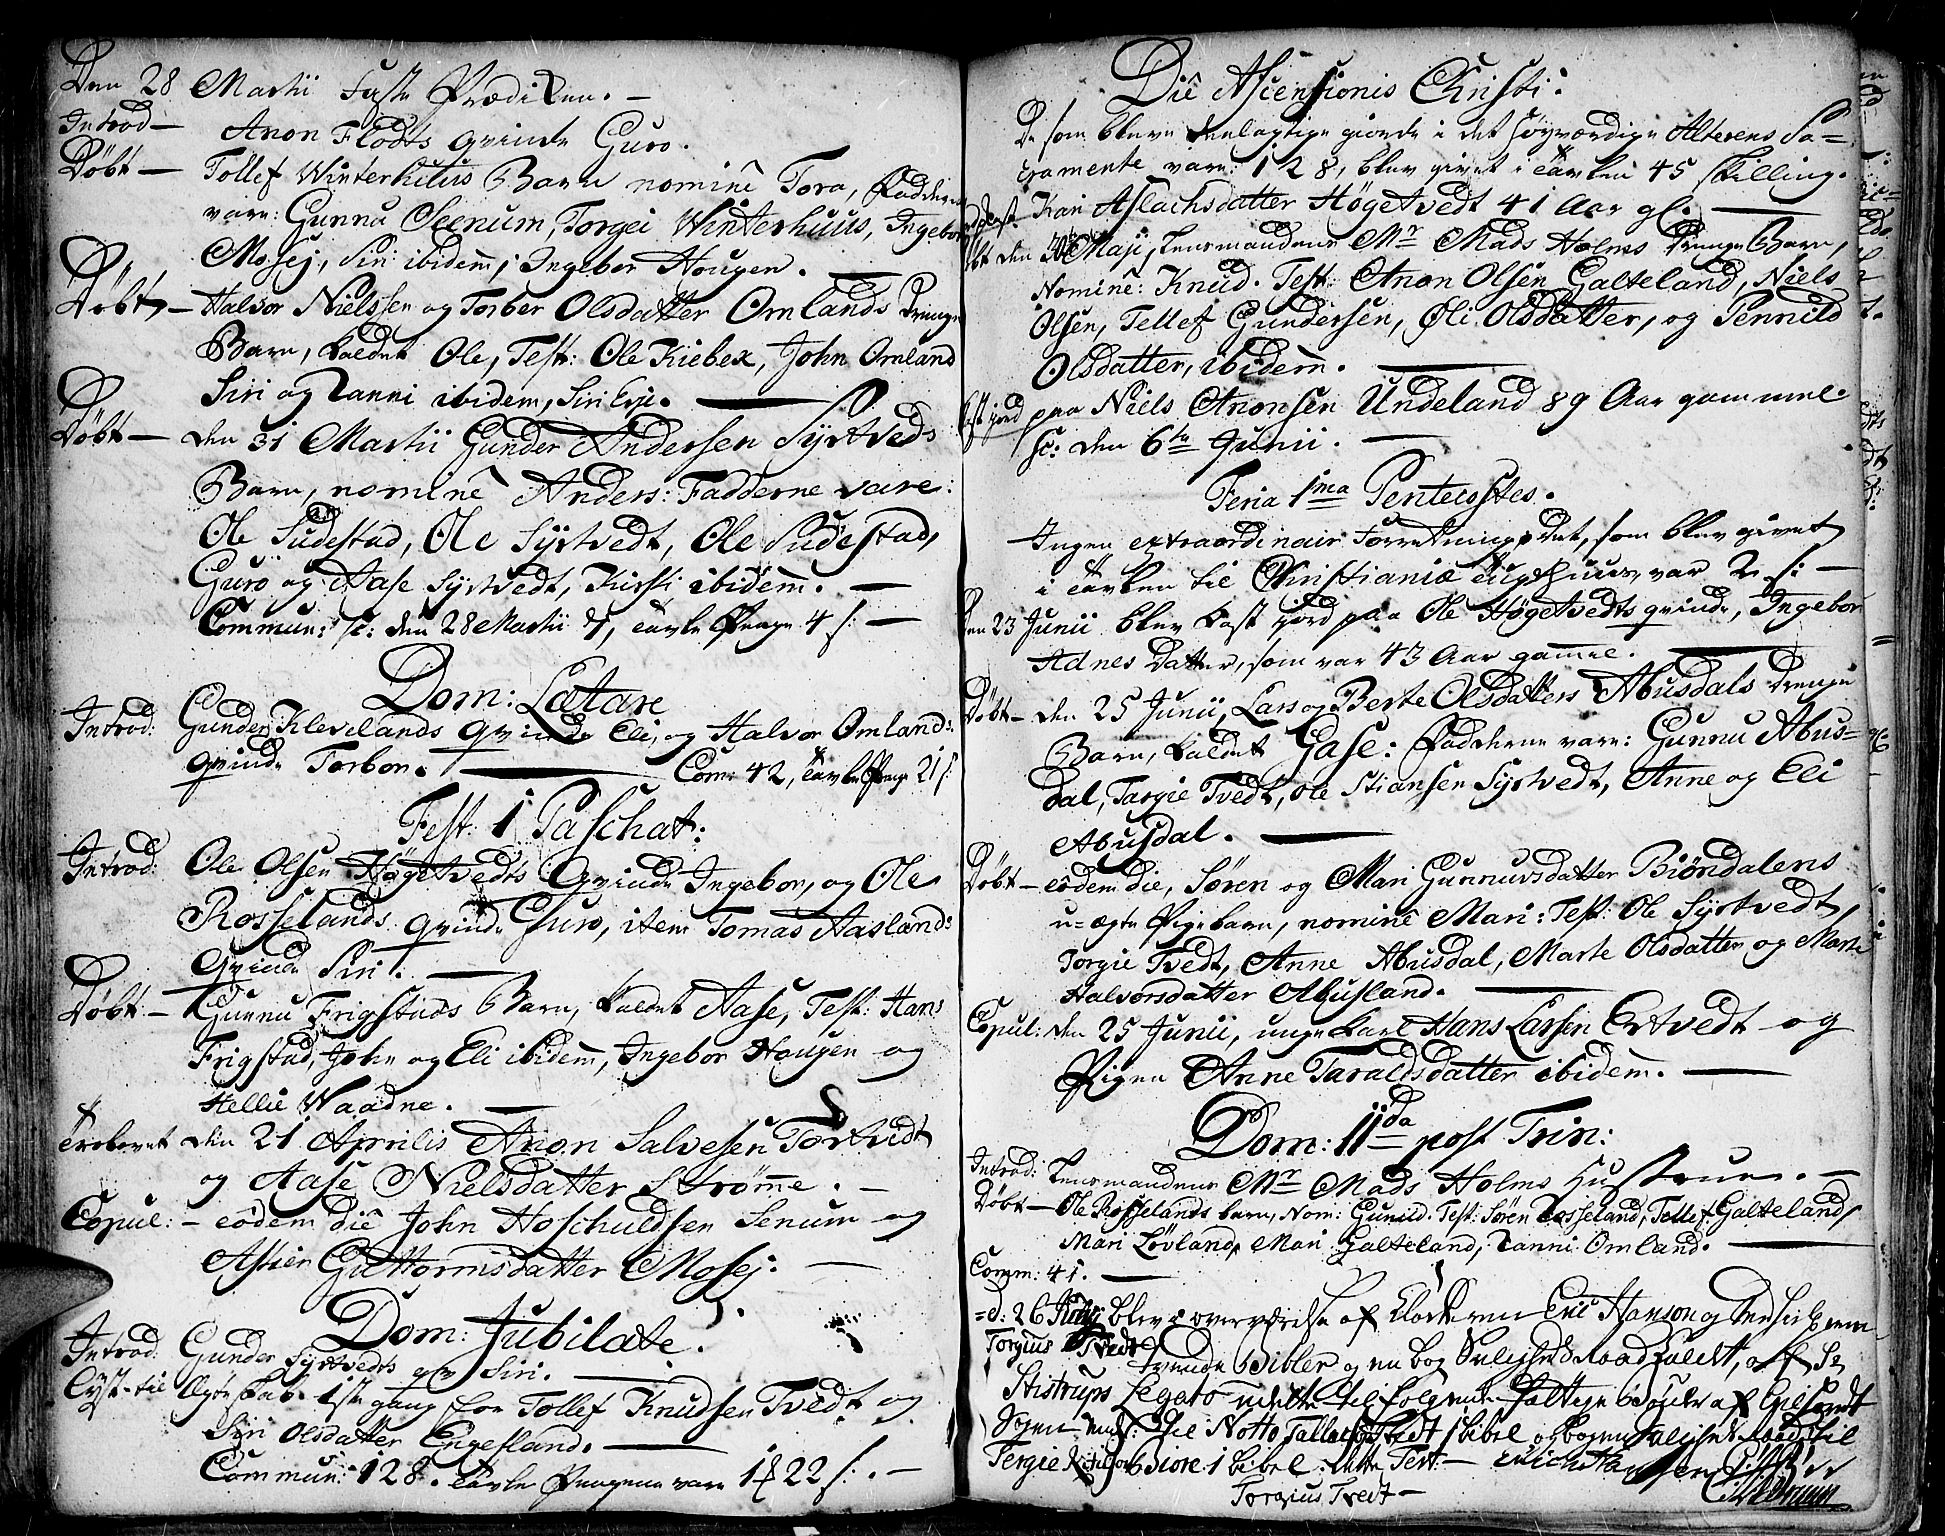 Den 28 Martii Faste Prædiken. —
Introd — Anon Flodts qvinde Guro.
Døbt — Tollef Winterhuus Barn nomine Tora, Fadderne
vare: Gunnu Seenum, Torgei Winterhuus, Ingebor
Mosej, Siri ibidem, Ingebor Hougen. —
Døbt — Halvor Nielssen og Torber Olsdatter Omlands Drenge
Barn, kaldet Ole, Test: Ole Kiebex, John Omland
Siri og Tanni ibidem, Siri Erje. —
Døbt — den 31 Martii Gunder Andersen Syrtveds
Barn, nomine Anders: Fadderne vare:
Ole Sudestad, Ole Syrtvedt, Ole Sudestad,
Guro og Aase Syrtvedt, Kirsti ibidem. —
Commun: sc: den 28 Martii 71, tavle Penge 4 s: —
Dom: Lætare
Introd: Gunder Klevelands qvinde Eli, og Halvor Omlands
qvinde Torbor. — Com: 42, tavle Penge 21 s:
Fest: 1 Paschat:
Introd: Ole Olsen Høgetvedts Qvinde Ingebor, og Ole
Rosselands qvinde Guro, item Tomas Aaslands
Qvinde Siri. —
Døbt — Gunnu Frigstads Barn, kaldet Aase, Test: Hans
Frigstad, John og Eli ibidem, Ingebor Hougen og
Hellie Waadne. —
Trolovet den 21 Aprilis Anon Salvesen Tortvedt
og Aase Nielsdatter Strømme. —
Copul: — eodem die John Hoschuldsen Senum og
Astier Guttormsdatter Mosej. —
Dom: Jubilate.
Introd: Gunder Syrtvedts qv: Siri. —
Lyst til Ægteskab 1ste gang for Tollef Knudsen Tvedt og
Siri Olsdatter Engesland. —
Commun: 128. tavle Pengene vare 1 22 s: —
Die Ascensionis Christi:
De som bleve deelagtige giorde i det høyværdige Alterens Sa=
cramente vare: 128, blev givet i tavlen 45 skilling.
Kari Aslachsdatter Høgetvedt 41 Aar gl. —
Døbt den Maji, Lensmandens Mr Mads Holms Drenge Barn,
Nomine: Knud. Test: Anon Olsen Galteland, Niels
Olsen, Tellef Gundersen, Øli Olsdatter, og Pennild
Olsdatter, ibidem. —
kast jord paa Niels Anonsen Undeland 89 Aar gammel.
sc: den 6te Junii. —
Feria 1ma Pentecostes.
Ingen extraordinair Forretning, Det, som blev givet
i tavlen til Christianiæ tugthuus, var 2 s: —
Den 23 Junii blev kast jord paa Ole Høgetvedts qvinde, Ingebor
Adnes Datter, som var 43 Aar gamel. —
Døbt — den 25 Junii, Lars og Berte Olsdatters Abusdals Drenge
Barn, kaldet Gase: Fadderne vare: Gunnu Abus=
dal, Targie Tvedt, Ole Stiansen Syrtvedt, Anne og Eli
Abusdal. —
Døbt — eodem die, Søren og Mari Gunnuvsdatter Biøndalens
u=ægte Pigebarn, nomine Mari: Test: Ole Syrtvedt,
Torgie Tvedt, Anne Abusdal, Marte Olsdatter og Marte
Halvorsdatter Abusland. —
Copul: den 25 Junii, unge karl Hans Larsen Ertvedt og
Pigen Anne Taraldsdatter ibidem. —
Dom: 11da post Trin:
Introd: Lensmandens Mr Mads Holms Hustrue. —
Døbt — Ole Rosselands barn, Nom: Gunild. Test: Søren Rosseland, Tellef Galteland,
Mari Løvland, Mari Galteland, Tanni Omland. —
Comm: 41. —
d: 26 blev i overværelse af Klockeren Eric Hanson og
Torgius Tvedt tvende Bibler og en bog
Stistrups Legato uddelte til følgende fattige
Sogn, Ole Notto Tvedt 1 bibel og bogen
Tergie 1 bibel: dette Test: —
Torgius Tvedt —